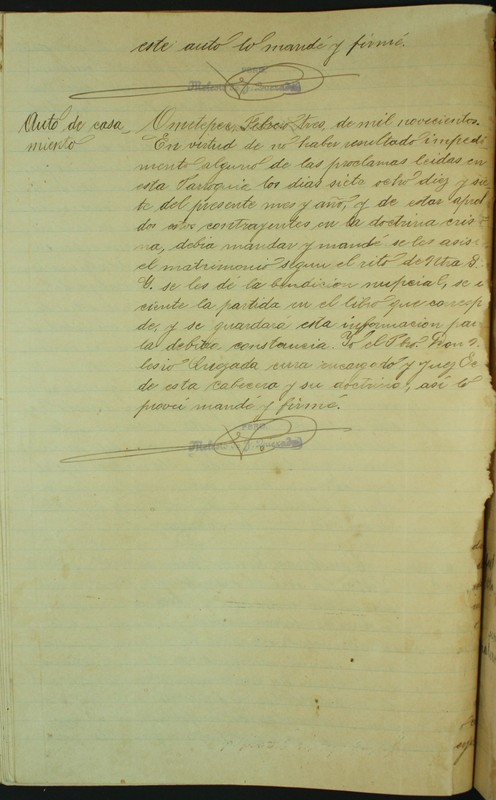 este auto lo mandé y firmé.
PBRO.
Auto de casa
miento
Ometepec, Febrero tres, de mil novecientos.
En virtud de no haber resultado impedi
mento alguno de las proclamas leidas en
esta Parroquia los dias siete ocho diez y sie
te del presente mes y año, y de estar apro
dos los contrayentes en la doctrina cris
na, debia mandar y mandé se les asis
el matrimonio segun el rito de Ntra S.
Y. se les de la bendicion nupcial, se
ciente la partida en el libro que corresp
de, y se guardará esta informacion para
la debida constancia. Yo el Pbro. Don
Quezada cura encargado y Juez Ec
de esta cabecera y su doctrina, así lo
proveí mandé y firmé.
PBRO.